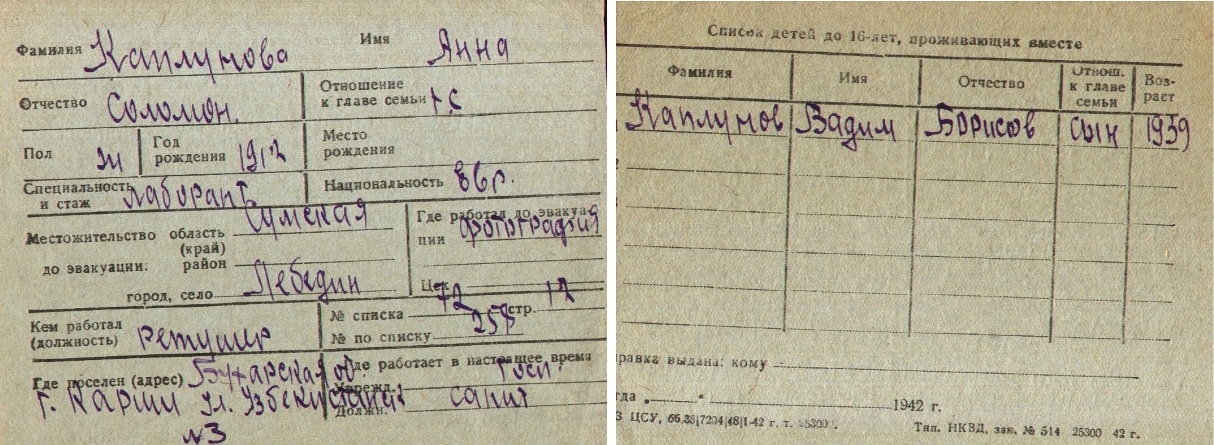 Фамилия Каплунова Имя Анна
Отчество Соломон. Отношение к главе семьи г.с
Пол ж Год рождения 1912 Место рождения
Специальность и стаж лаборант Национальность евр.
Местожительство до эвакуации: область (край) Сумская
район
город, село Лебедин
Где работал до эвакуации фотография
Цех
Кем работал (должность) ретушер
№ списка 72 стр. 12
№ по списку 258
Где поселен (адрес) Бухарская об.
г. Карши ул. Узбекистанск
№3
Где работает в настоящее время
Учрежд. Госп.
Должн. санит
Список детей до 16-лет, проживающих вместе
Фамилия Имя Отчество Отнош. к главе семьи Возраст
Каплунов Вадим Борисов сын 1939
правка выдана: кому
гда „ “ 1942 г.
З ЦСУ,
Тип. НКВД, зак. № 514 25300 42 г.